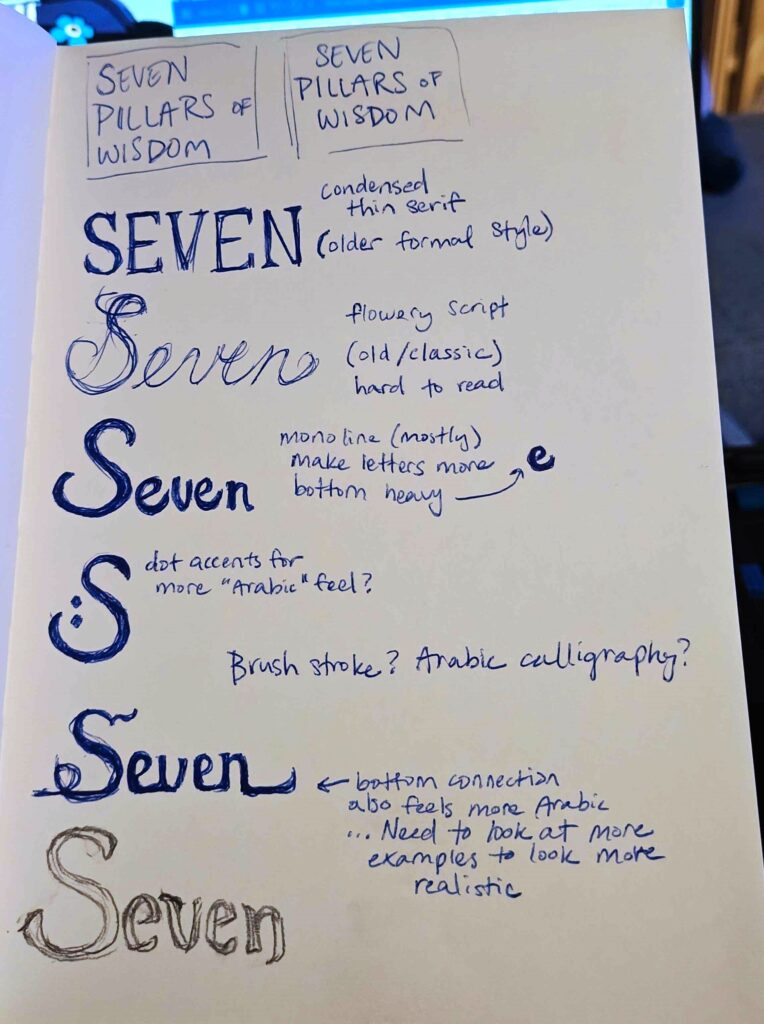 SEVEN
PILLARS OF
WISDOM
SEVEN
PILLARS OF
WISDOM
SEVEN
condensed
thin serif
(older formal style)
Seven
flowery script
(old/classic)
hard to read
Seven
monoline (mostly)
make letters more
bottom heavy
e
S
dot accents for
more "Arabic" feel?
Brush stroke? Arabic calligraphy?
Seven
← bottom connection
also feels more Arabic
... Need to look at more
examples to look more
realistic
Seven